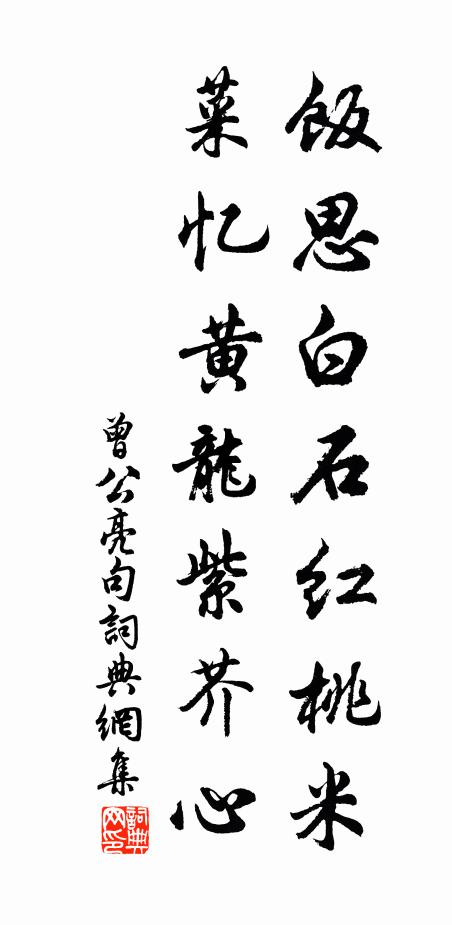 飯思白石红桃米
菜忆黄龍紫芥心
曾公亮句詞典網集
詞典网印